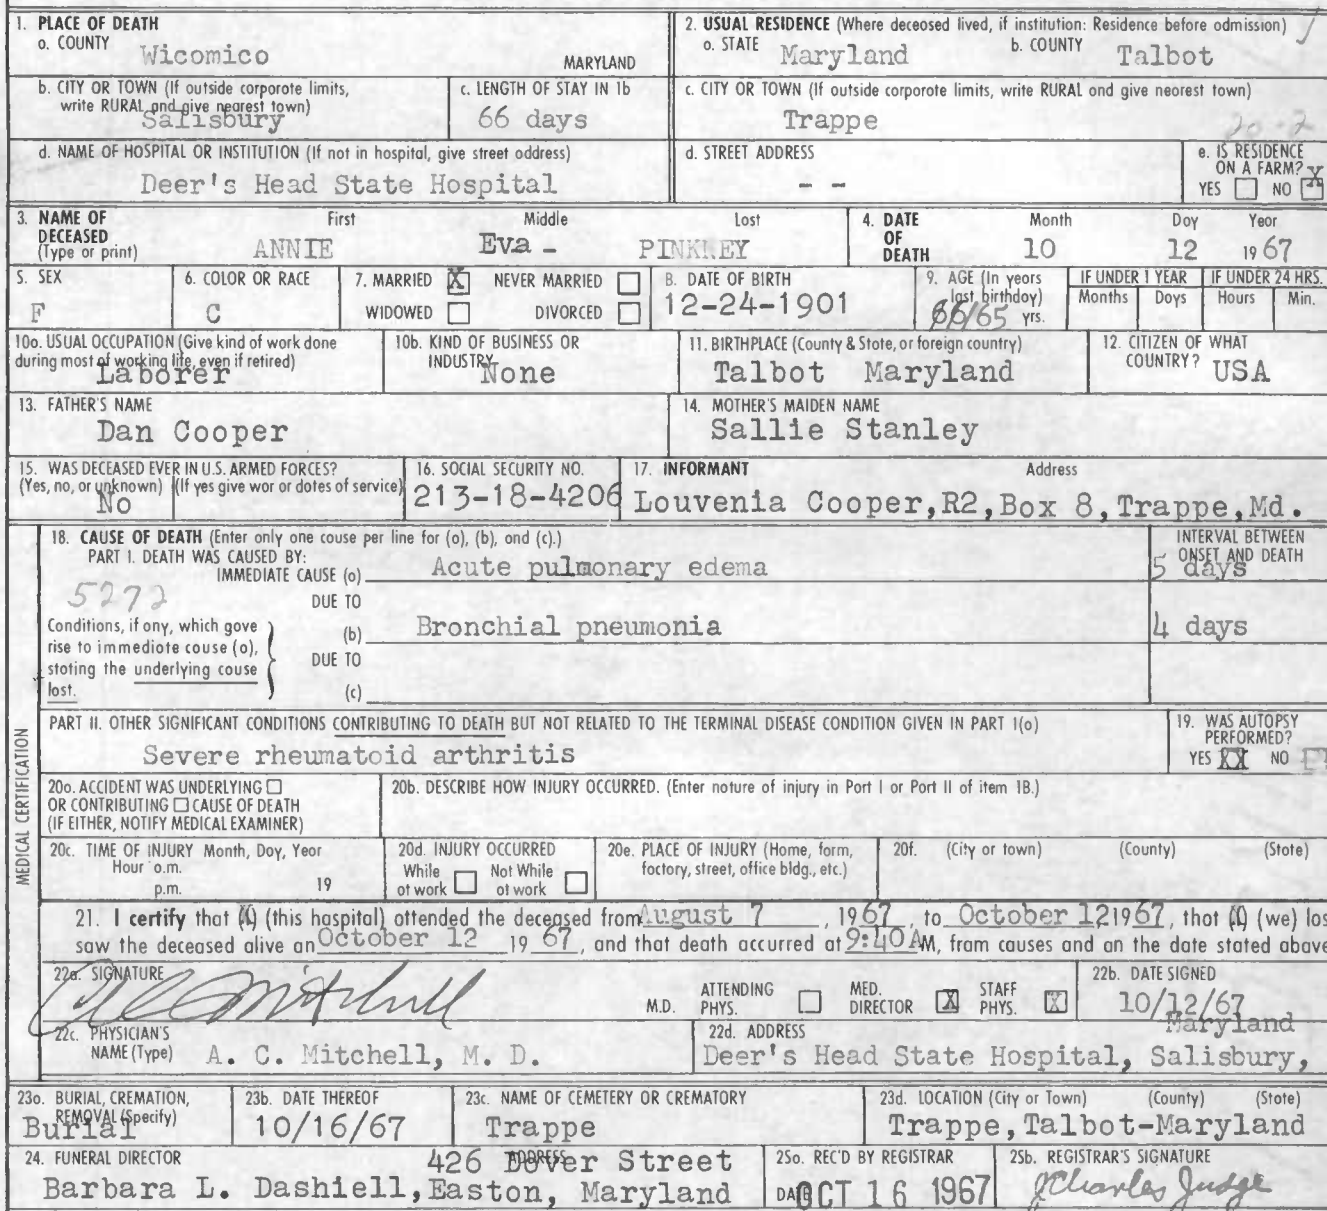 1. PLACE OF DEATH
a. COUNTY
Wicomico MARYLAND
2. USUAL RESIDENCE (Where deceased lived, if institution: Residence before admission)
a. STATE Maryland b. COUNTY Talbot
b. CITY OR TOWN (If outside corporate limits, write RURAL and give nearest town)
Salisbury
c. LENGTH OF STAY IN 1b
66 days
c. CITY OR TOWN (If outside corporate limits, write RURAL and give nearest town)
Trappe
20-2
d. NAME OF HOSPITAL OR INSTITUTION (If not in hospital, give street address)
Deer's Head State Hospital
d. STREET ADDRESS
- -
e. IS RESIDENCE ON A FARM?
YES NO X
3. NAME OF DECEASED (Type or print)
First Middle Last
ANNIE Eva - PINKLEY
4. DATE OF DEATH
Month Day Year
10 12 1967
5. SEX
F
6. COLOR OR RACE
C
7. MARRIED X NEVER MARRIED
WIDOWED DIVORCED
8. DATE OF BIRTH
12-24-1901
9. AGE (In years last birthday)
66/65 yrs.
IF UNDER 1 YEAR
Months Days
IF UNDER 24 HRS.
Hours Min.
10a. USUAL OCCUPATION (Give kind of work done during most of working life, even if retired)
Laborer
10b. KIND OF BUSINESS OR INDUSTRY
None
11. BIRTHPLACE (County & State, or foreign country)
Talbot Maryland
12. CITIZEN OF WHAT COUNTRY?
USA
13. FATHER'S NAME
Dan Cooper
14. MOTHER'S MAIDEN NAME
Sallie Stanley
15. WAS DECEASED EVER IN U.S. ARMED FORCES?
(Yes, no, or unknown) (If yes give war or dates of service)
No
16. SOCIAL SECURITY NO.
213-18-4206
17. INFORMANT Address
Louvenia Cooper,R2,Box 8,Trappe,Md.
MEDICAL CERTIFICATION
18. CAUSE OF DEATH (Enter only one cause per line for (a), (b), and (c).)
PART I. DEATH WAS CAUSED BY:
IMMEDIATE CAUSE (a) Acute pulmonary edema
INTERVAL BETWEEN ONSET AND DEATH
5 days
5272
DUE TO
Conditions, if any, which gave rise to immediate cause (a), stating the underlying cause last.
(b) Bronchial pneumonia
4 days
DUE TO
(c)
PART II. OTHER SIGNIFICANT CONDITIONS CONTRIBUTING TO DEATH BUT NOT RELATED TO THE TERMINAL DISEASE CONDITION GIVEN IN PART I(a)
Severe rheumatoid arthritis
19. WAS AUTOPSY PERFORMED?
YES XX NO
20a. ACCIDENT WAS UNDERLYING
OR CONTRIBUTING CAUSE OF DEATH
(IF EITHER, NOTIFY MEDICAL EXAMINER)
20b. DESCRIBE HOW INJURY OCCURRED. (Enter nature of injury in Part I or Part II of item 18.)
20c. TIME OF INJURY Month, Day, Year
Hour a.m.
p.m. 19
20d. INJURY OCCURRED
While at work Not While at work
20e. PLACE OF INJURY (Home, farm, factory, street, office bldg., etc.)
20f. (City or town) (County) (State)
21. I certify that (I) (this hospital) attended the deceased from August 7 1967 to October 12 1967, that (I) (we) las
saw the deceased alive on October 12 1967, and that death occurred at 9:40 AM, from causes and on the date stated above
22a. SIGNATURE
A C Mitchell
M.D. ATTENDING PHYS. MED. DIRECTOR X STAFF PHYS. X
22b. DATE SIGNED
10/12/67
22c. PHYSICIAN'S NAME (Type) A. C. Mitchell, M. D.
22d. ADDRESS
Deer's Head State Hospital, Salisbury, Maryland
23a. BURIAL, CREMATION, REMOVAL (Specify)
Burial
23b. DATE THEREOF
10/16/67
23c. NAME OF CEMETERY OR CREMATORY
Trappe
23d. LOCATION (City or Town) (County) (State)
Trappe,Talbot-Maryland
24. FUNERAL DIRECTOR ADDRESS
426 Dover Street
Barbara L. Dashiell, Easton, Maryland
25a. REC'D BY REGISTRAR
DATE OCT 16 1967
25b. REGISTRAR'S SIGNATURE
J Charles Judge